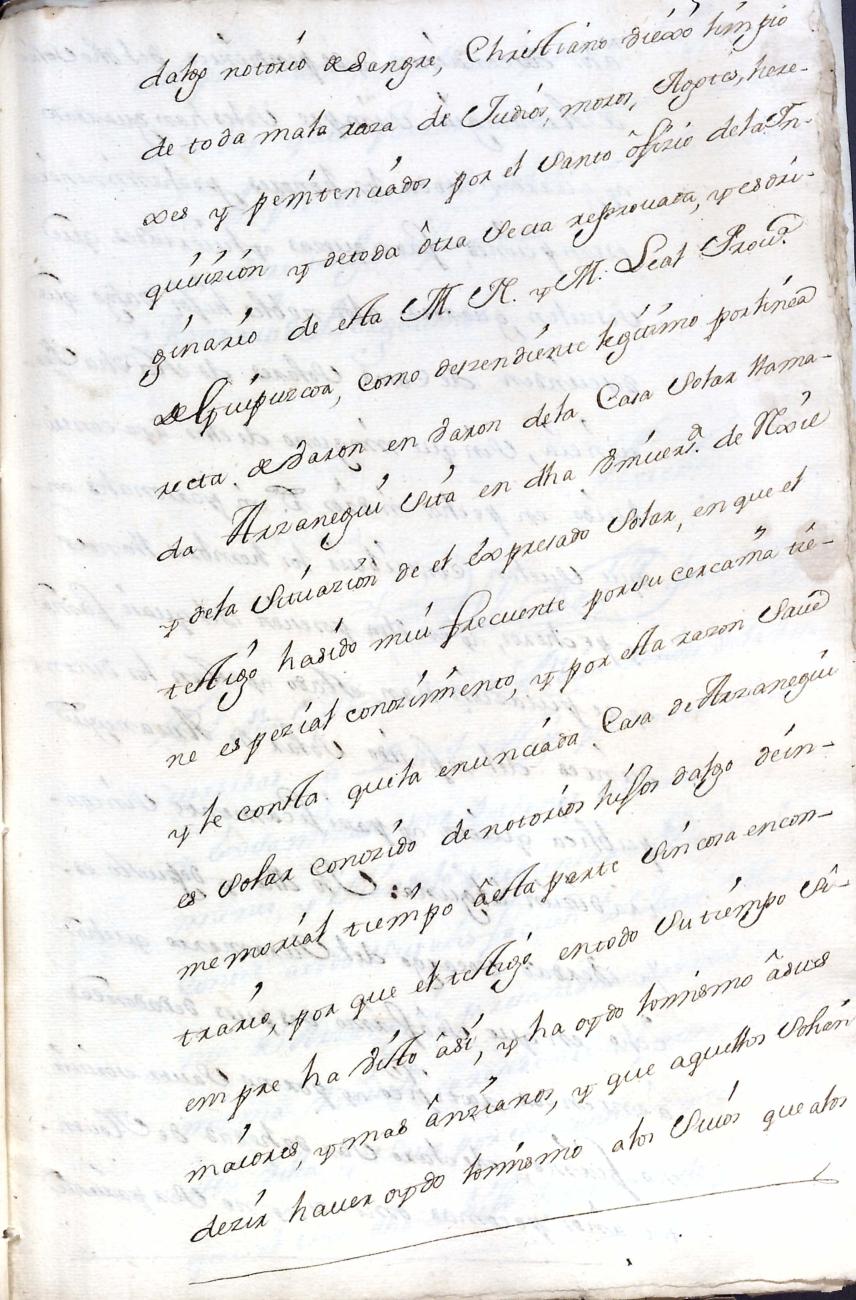 dalgo notorio de Sangre, Christiano viexo limpio
de toda mala raza de Judios, moros, Agotes, here-
xes y penitenciados por el Santo ôfizio dela In-
quisizion y detoda ôtra Secta reprouada, y es ôri-
ginario de esta M. N. y M. Leal Prou.ª
de Guipuzcoa, como deszendiente legitimo por linea
recta de Varon en Varon dela Casa Solar llama-
da Arzanegui Sita en dha Vniuers.d de
y dela Situazion de el expresado Solar, en que el
testigo hasido mui frecuente por su cercania tie-
ne espezial conozimiento, y por esta razon Saue
y le consta que la enunciada Casa de Arzanegui
es Solar conozido de notorios hijos dalgo de in-
memorial tiempo âesta parte Sin cosa en con-
trario, por que el testigo entodo Su tiempo Si-
empre ha visto âsi, y ha oydo lo mismo âsus
maiores, y mas ânzianos, y que aquellos Solian
dezir hauer oydo lo mismo alos Suios que alos